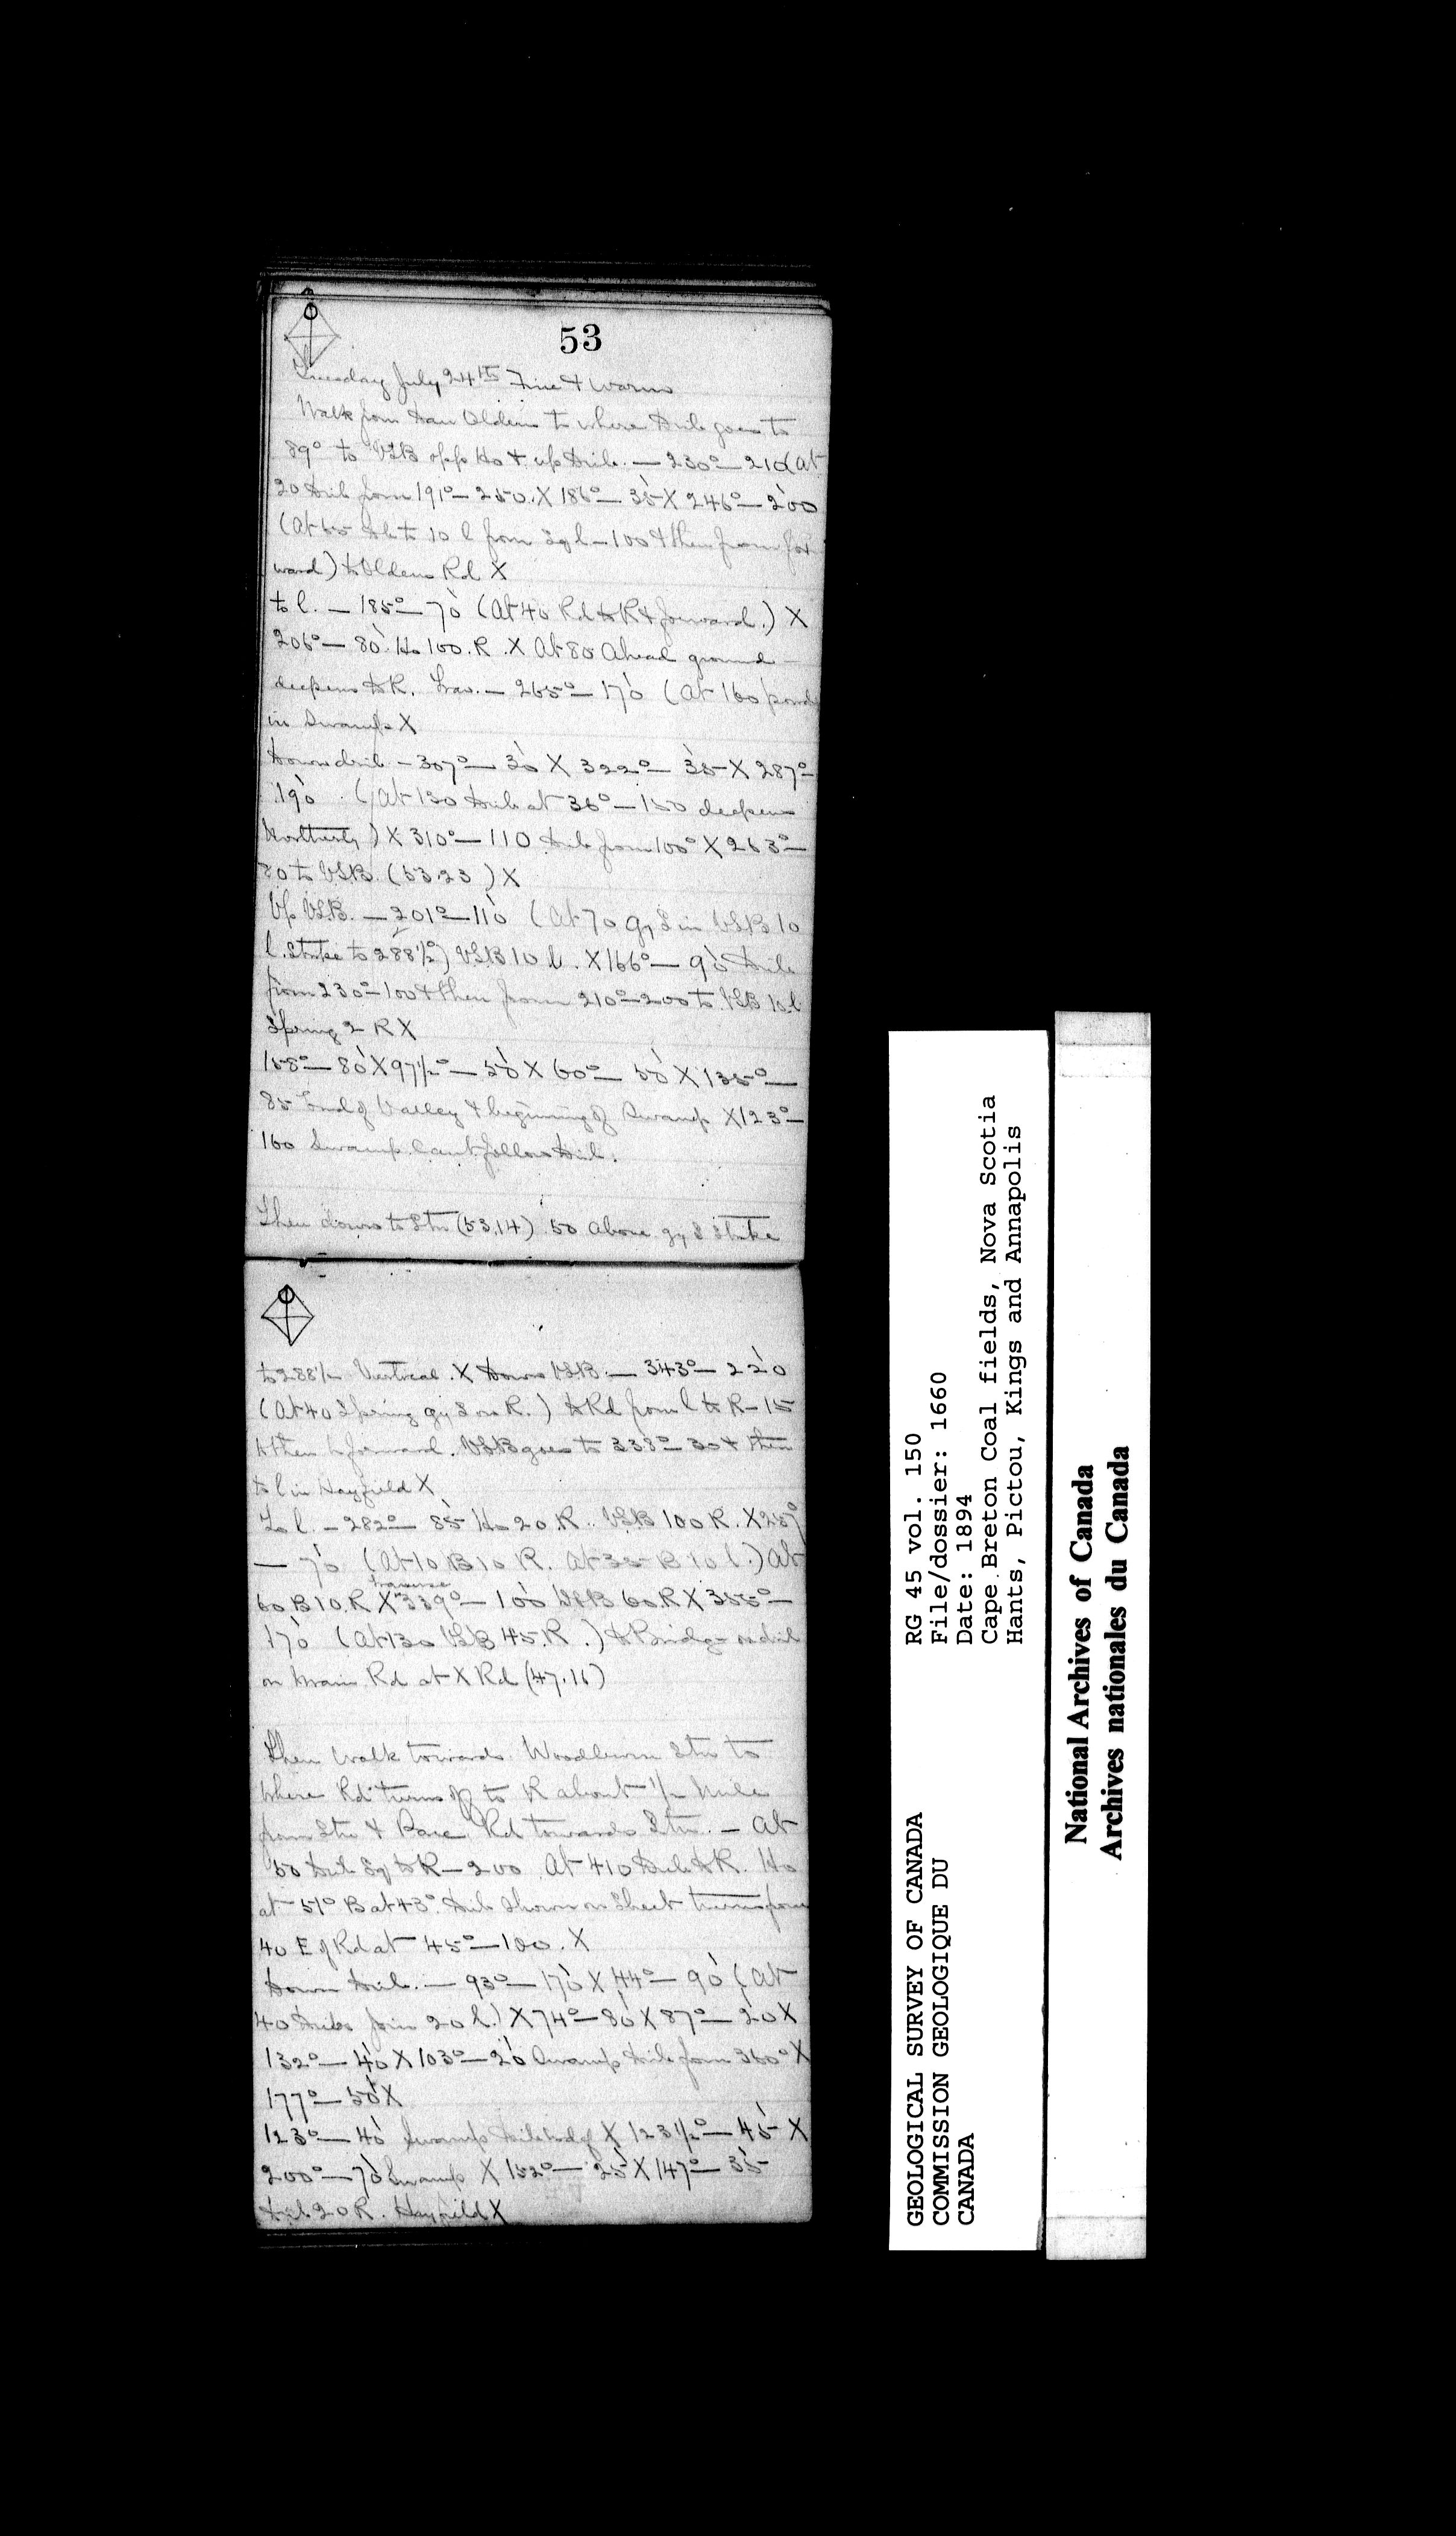 53
Tuesday July 24th Fine & warm
Walk from Dan Oldens to where goes to
89° to VSB opp Ho & up — 230° — 210 (at
20 from 191° — 250. X 186° — 35 X 246° — 200
(at 65 to 10 l from Sq l — 100 & then from for
ward) to Oldens Rd X
to l. — 185° — 70 (at 40 Rd to R & forward.) X
206° — 80. Ho 100. R. X At 80 ahead ground
deepens to R. Trav. — 265° — 170 (at 160 pond
in Swamp X
Down — 307° — 30 X 322° — 35 X 287° —
190. (at 130 at 36° — 150 deepens
Northerly) X 310° — 110 from 100° X 263° —
80 to VSB. (53.23) X
Up VSB. — 201° — 110 (at 70 gy S in VSB 10
l. Strike to 288½°) VSB 10 l. X 166° — 90
from 230° — 100 & then from 210° — 200 to VSB 10 l
Spring 2 R X
158° — 80 X 97½° — 50 X 60° — 50 X 135° —
85 End of Valley & beginning of Swamp X 123° —
160 Swamp Cant follow
Then down to Stn (53.14) 50 above gy S Strike
to 288½ Vertical. X Down VSB. — 343° — 220
(at 40 Spring gy S on R.) to Rd from l to R — 15
& then to forward. VSB goes to 338° — 30 & then
to l in Hayfield X
To l. — 282° — 85 Ho 20 R. VSB 100 R. X 257°
— 70 (at 10 B 10 R. At 35 B 10 l.) At
traverse
60 B 10. R X 339° — 100 VSB 60. R X 355° —
170 (at 130 VSB 45. R.) to Bridge
on Main Rd at X Rd (47.16)
Then walk towards Woodburn Stn to
where Rd turns off to R about ½ mile
from Stn & Pace Rd towards Stn. — At
50 Sq to R — 200 At 410 to R. Ho
at 51° B at 43°. shown on Sheet
40 E of Rd at 45° — 100. X
Down — 93° — 170 X 44° — 90 (at
40 join 20 l.) X 74° — 80 X 87° — 20 X
132° — 40 X 103° — 20 Swamp from 360° X
177° — 50 X
123° — 40 Swamp X 123½° — 45 X
200° — 70 Swamp X 152° — 25 X 147° — 35
20 R. Hayfield X
GEOLOGICAL SURVEY OF CANADA
COMMISSION GEOLOGIQUE DU
CANADA
RG 45 vol. 150
File/dossier: 1660
Date: 1894
Cape Breton Coal fields, Nova Scotia
Hants, Pictou, Kings and Annapolis
National Archives of Canada
Archives nationales du Canada